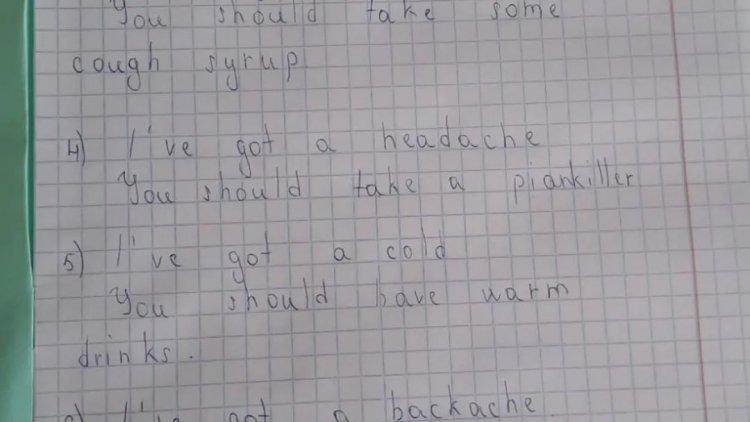 You should take some
cough syrup
4) I've got a headache
You should take a piankiller
5) I've got a cold
You should have warm
drinks.
got a backache.